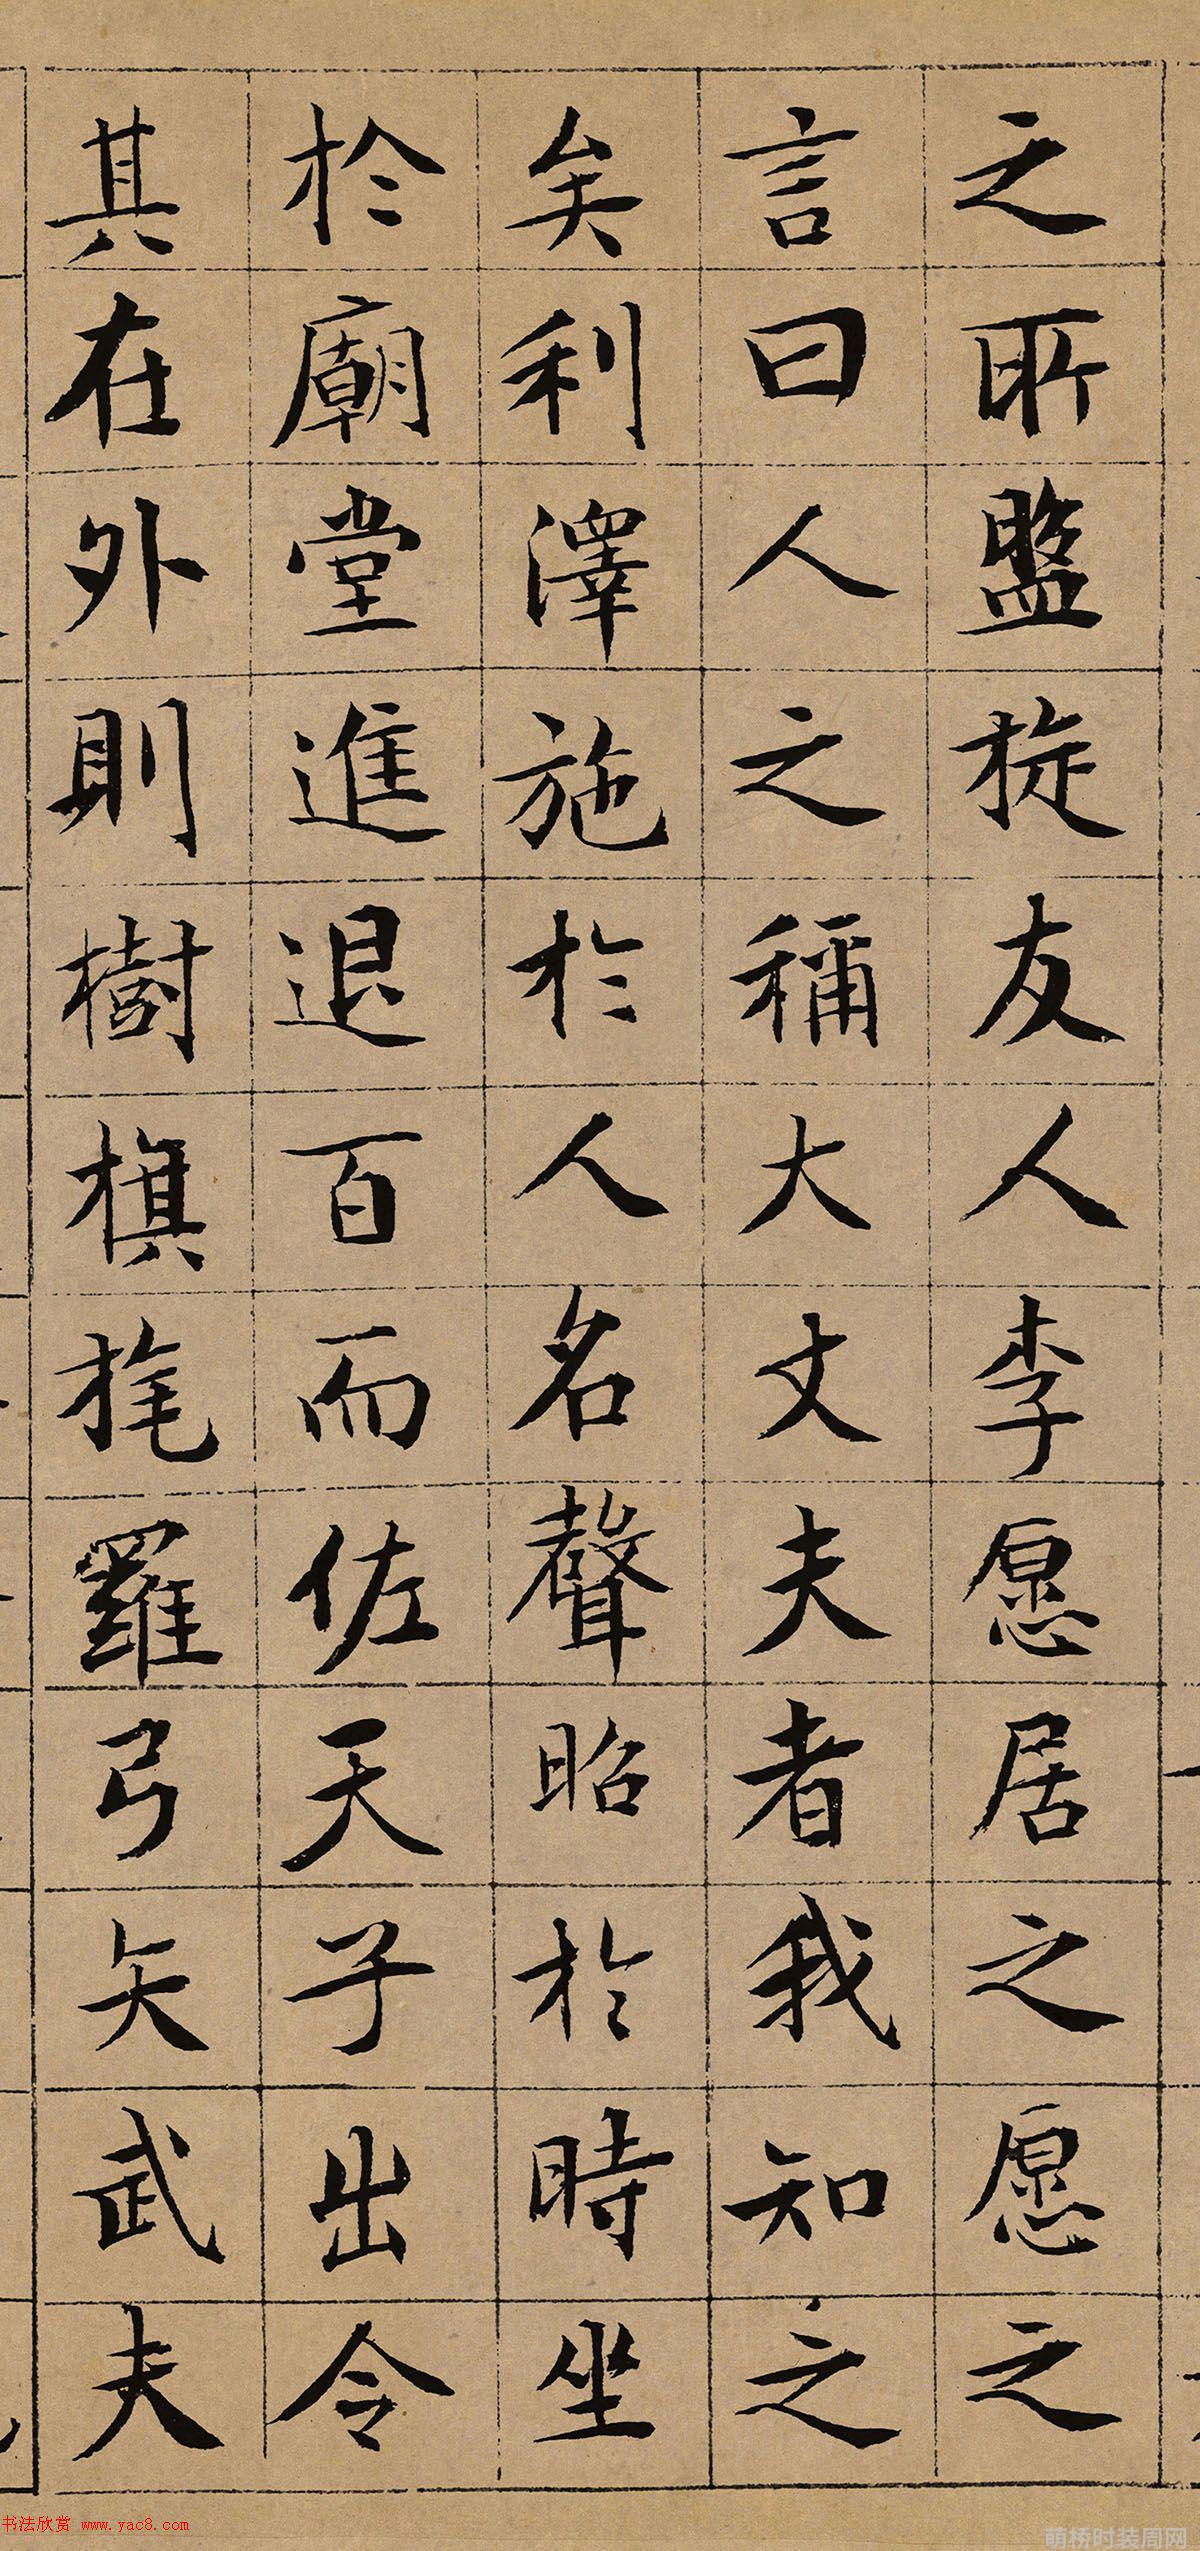 之所盤旋友人李愿居之愿之
言曰人之稱大丈夫者我知之
矣利澤施於人名聲昭於時坐
於廟堂進退百而佐天子出令
其在外則樹旗旄羅弓矢武夫
书法欣赏 www.yac8.com
萌桥时装周网